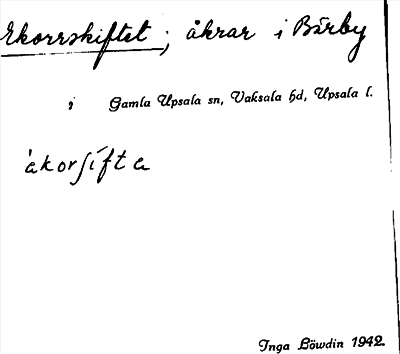 Ekorrskiftet; åkrar i Bärby
; Gamla Upsala sn, Vaksala hd, Upsala l.
àkorſífta
Inga Löwdin 1942.